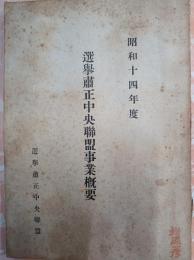 昭和十四年度
選擧肅正中央聯盟事業概要
選擧肅正中央聯盟